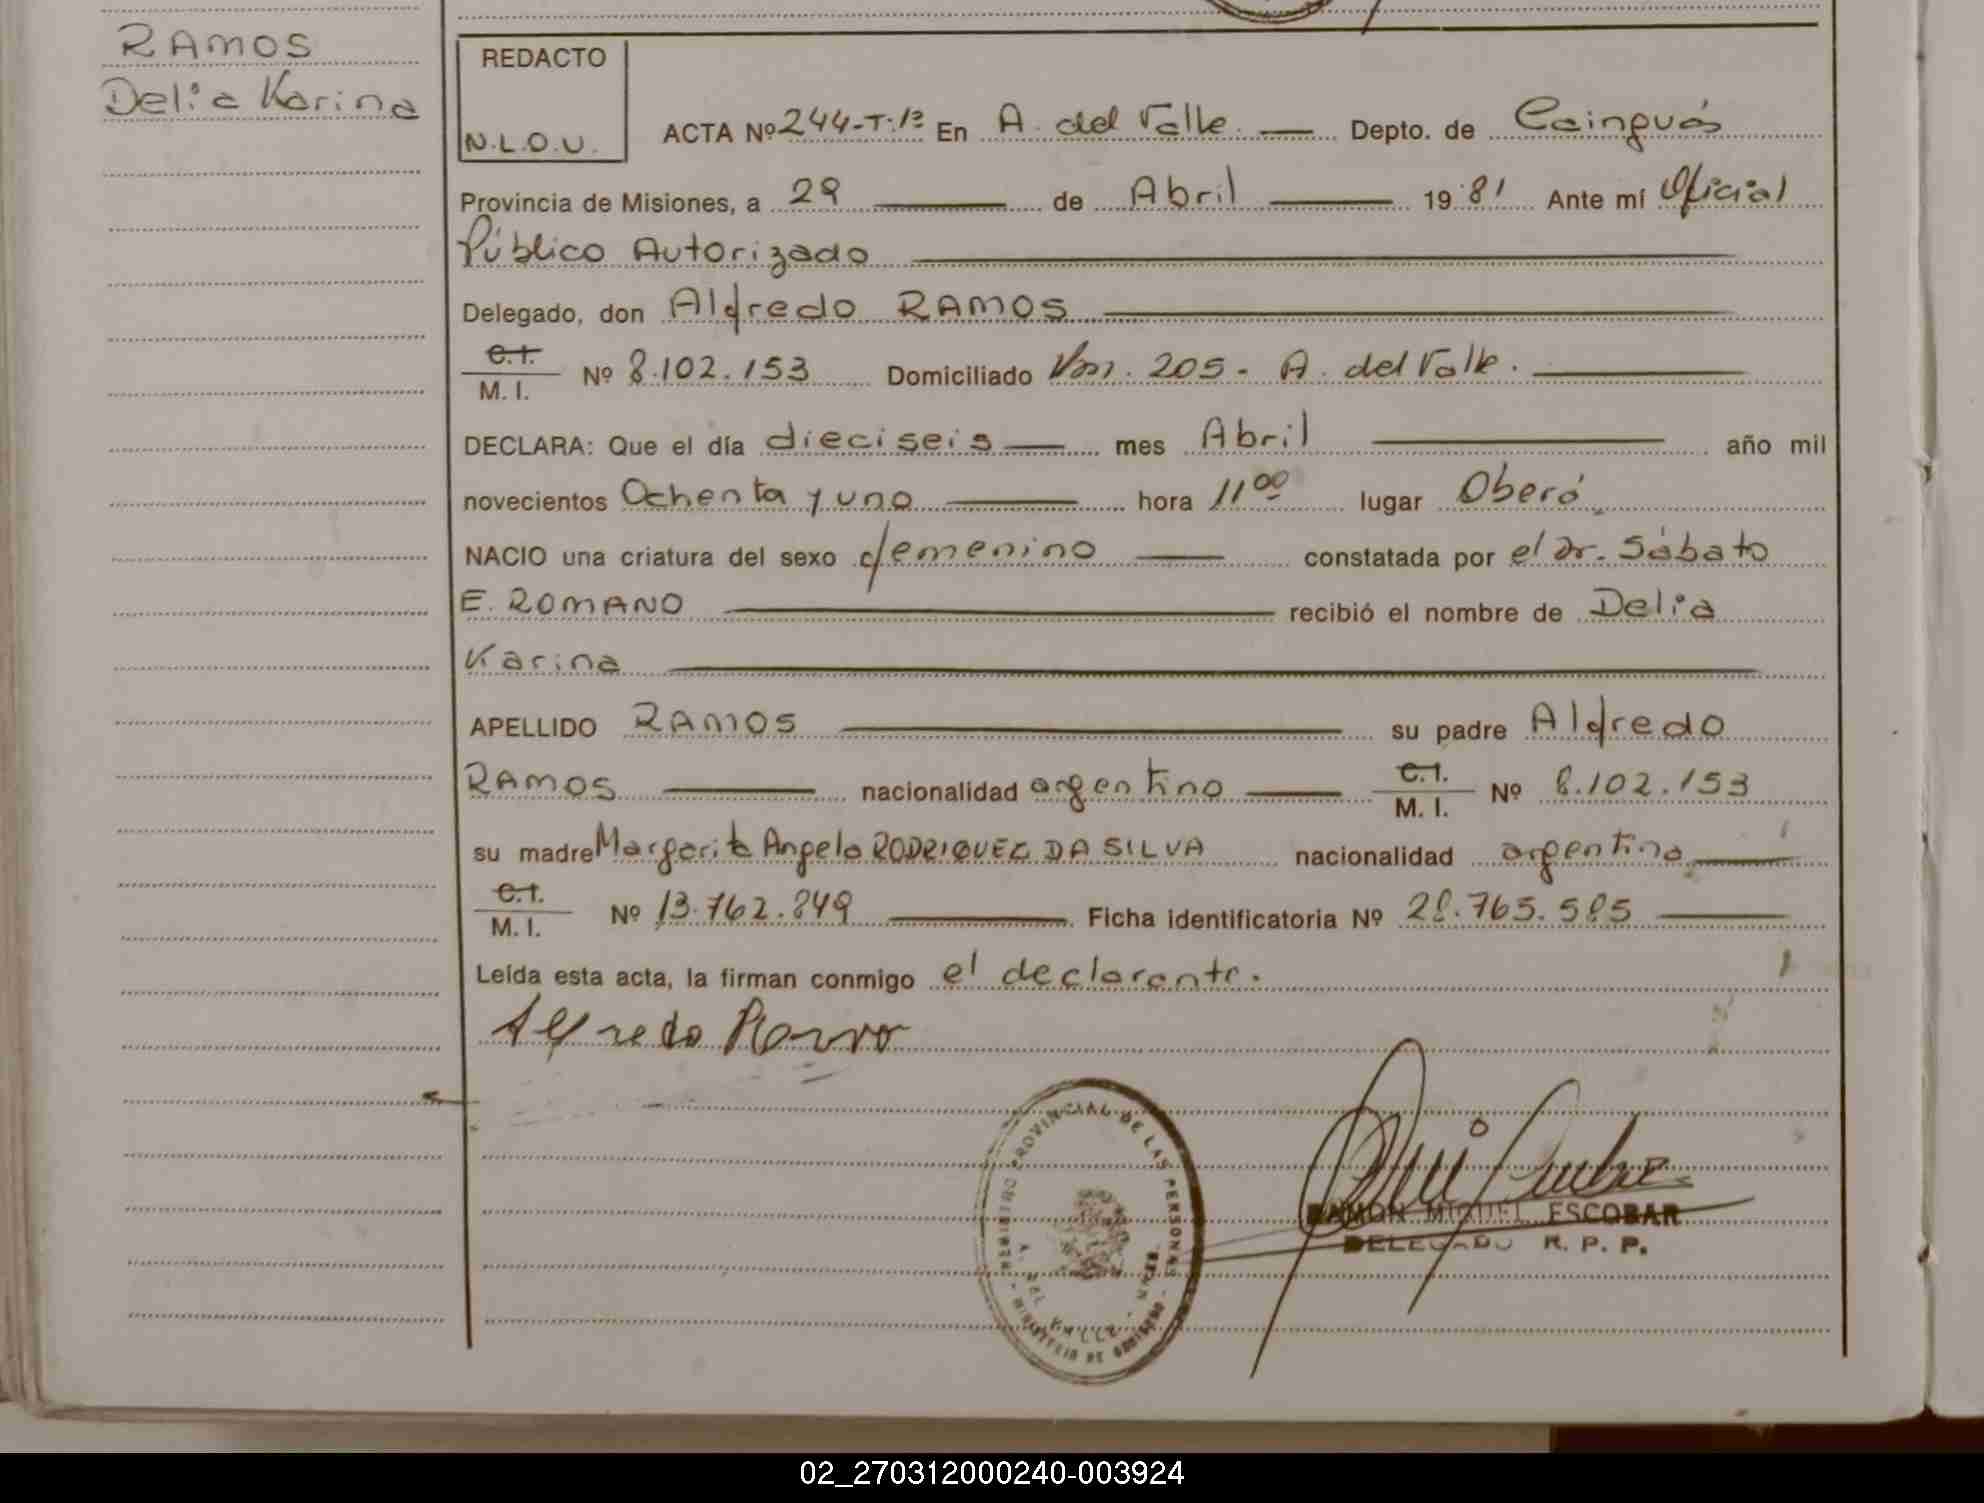 RAMOS
Delia Karina
REDACTO
N.L.O.U.
ACTA Nº 244-T:1º En A. del Valle. Depto. de Cainguás
Provincia de Misiones, a 29 de Abril 1981 Ante mí Oficial
Público Autorizado
Delegado, don Alfredo RAMOS
C.I.
M. I. Nº 8.102.153 Domiciliado 205 - A. del Valle.
DECLARA: Que el día dieciseis mes Abril año mil
novecientos Ochenta y uno hora 11 00 lugar Oberá
NACIO una criatura del sexo femenino constatada por el Dr. Sábato
E. ROMANO recibió el nombre de Delia
Karina
APELLIDO RAMOS su padre Alfredo
RAMOS nacionalidad argentino C.I. M. I. Nº 8.102.153
su madre Margarita Angela RODRIGUEZ DA SILVA nacionalidad argentina
C.I.
M. I. Nº 13.762.849 Ficha identificatoria Nº 28.765.585
Leída esta acta, la firman conmigo el declarante.
Alfredo Ramos
REGISTRO PROVINCIAL DE LAS PERSONAS
MINISTERIO DE GOBIERNO
A. DEL VALLE
RAMON MIGUEL ESCOBAR
DELEGADO R. P. P.
02_270312000240-003924